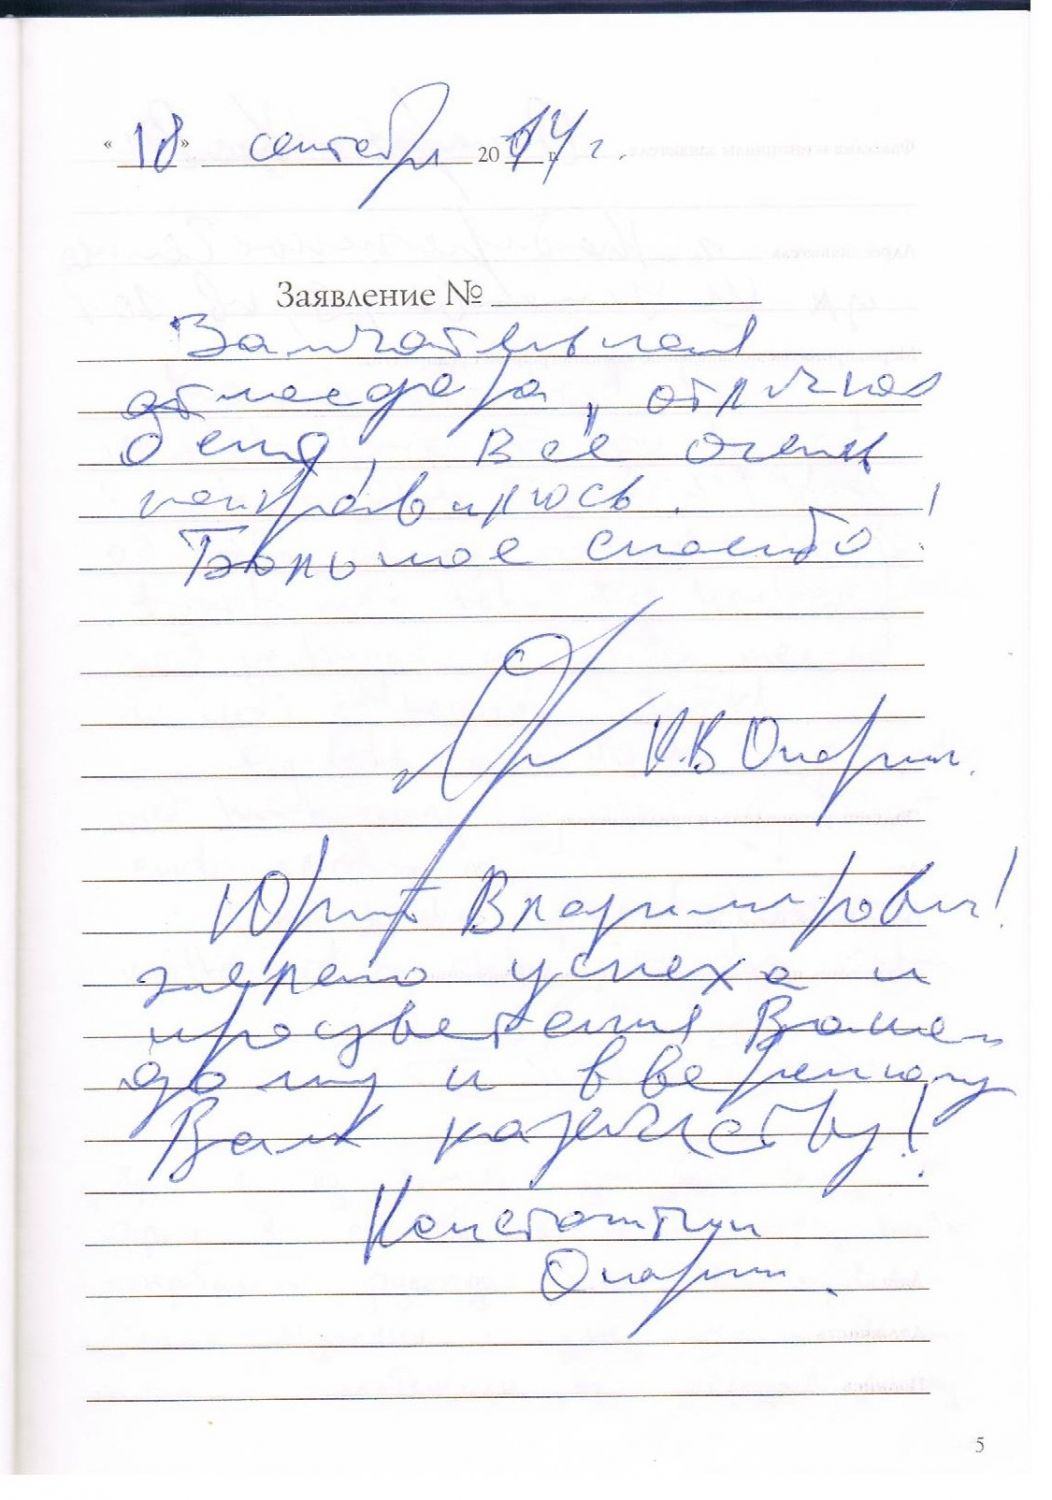 «18» сентября 2014 г.
Заявление №
Замечательная
атмосфера, отличная
еда, всё очень
понравилось.
Большое спасибо!
К.В Опарин.
Юрий Владимирович!
желаю успеха и
процветания Вашему
дому и вверенному
Вам казачеству!
Константин
Опарин.
5